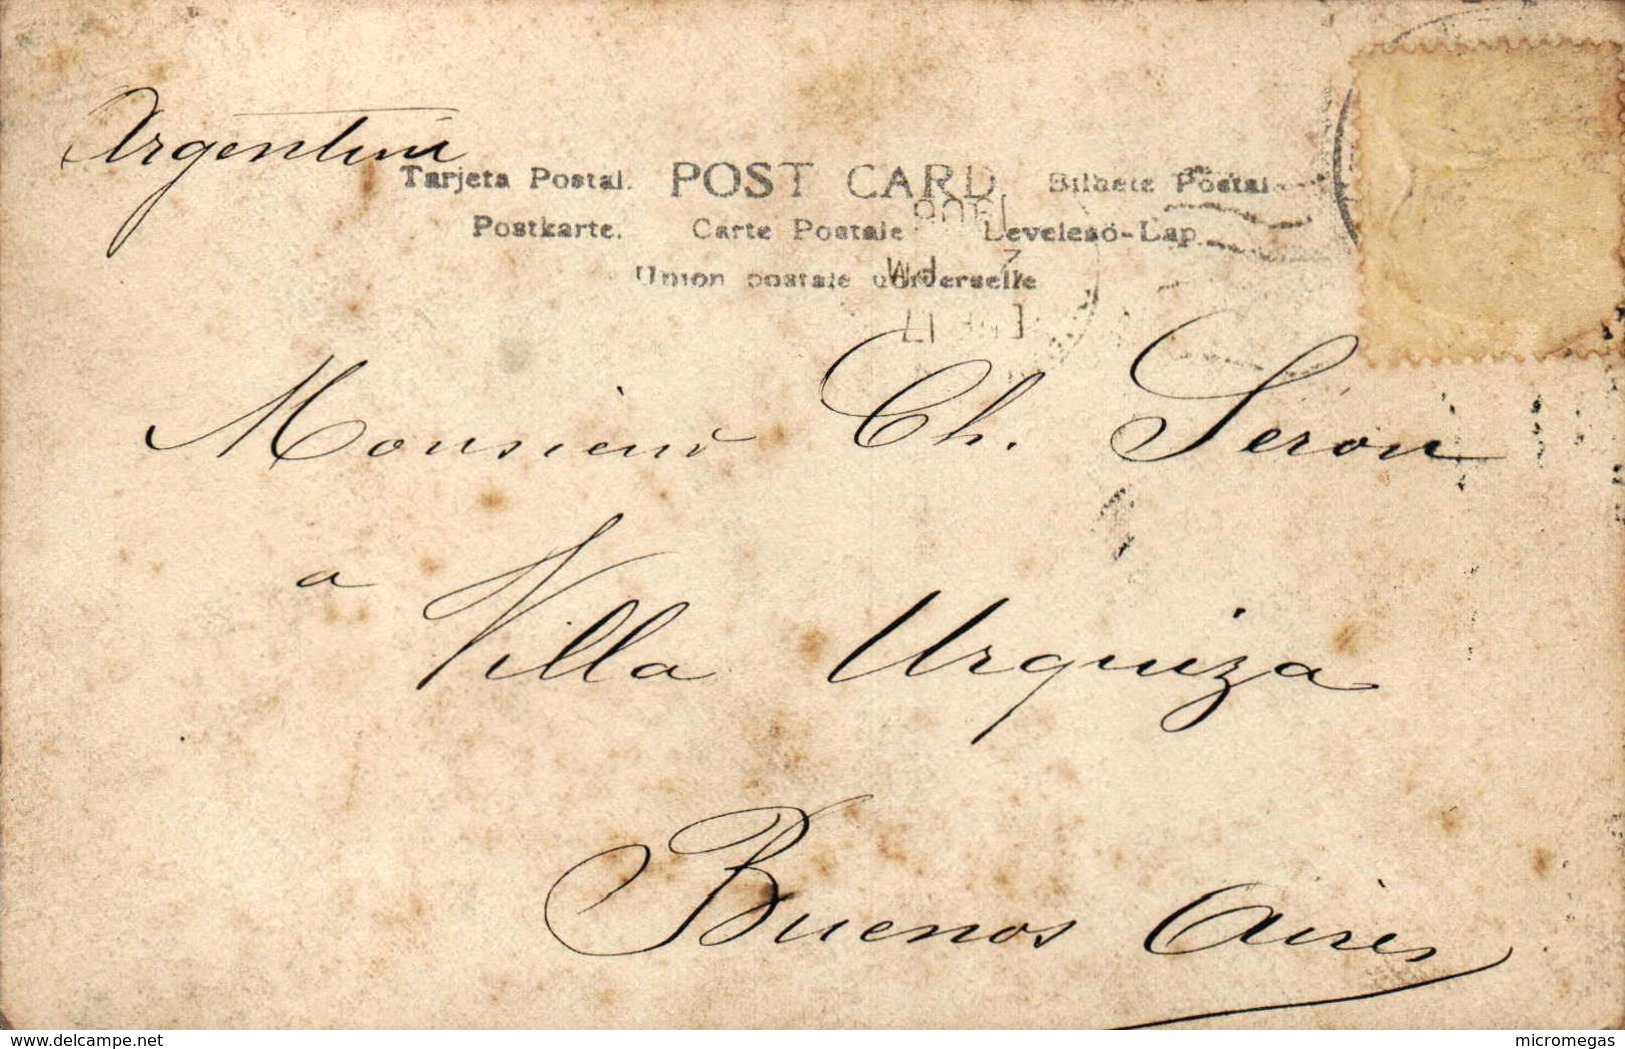 Argentine
Tarjeta Postal. POST CARD Bilhete Postal
Postkarte. Carte Postale Levelezö-Lap
Union postale universelle
1906
7 PM
17
Monsieur Ch. Seron
a Villa Urquiza
Buenos Aires
www.delcampe.net micromegas